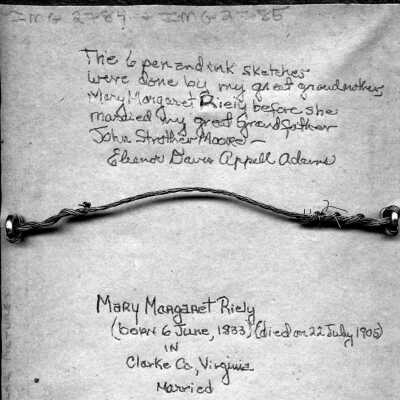 IMG 2784 + IMG 2785
The 6 pen and ink sketches
were done by my great grandmother
Mary Margaret Riely before she
married my great grandfather
John Strother Moore —
Eleanor Davis Appell Adams
Mary Margaret Riely
(born 6 June, 1833) (died on 22 July 1905)
IN
Clarke Co., Virginia
Married